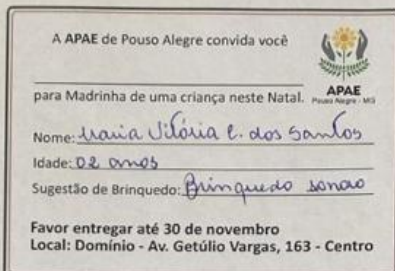 A APAE de Pouso Alegre convida você
APAE
Pouso Alegre - MG
para Madrinha de uma criança neste Natal.
Nome: Maria Vitória C. dos Santos
Idade: 02 anos
Sugestão de Brinquedo: Brinquedo sonoro
Favor entregar até 30 de novembro
Local: Domínio - Av. Getúlio Vargas, 163 - Centro